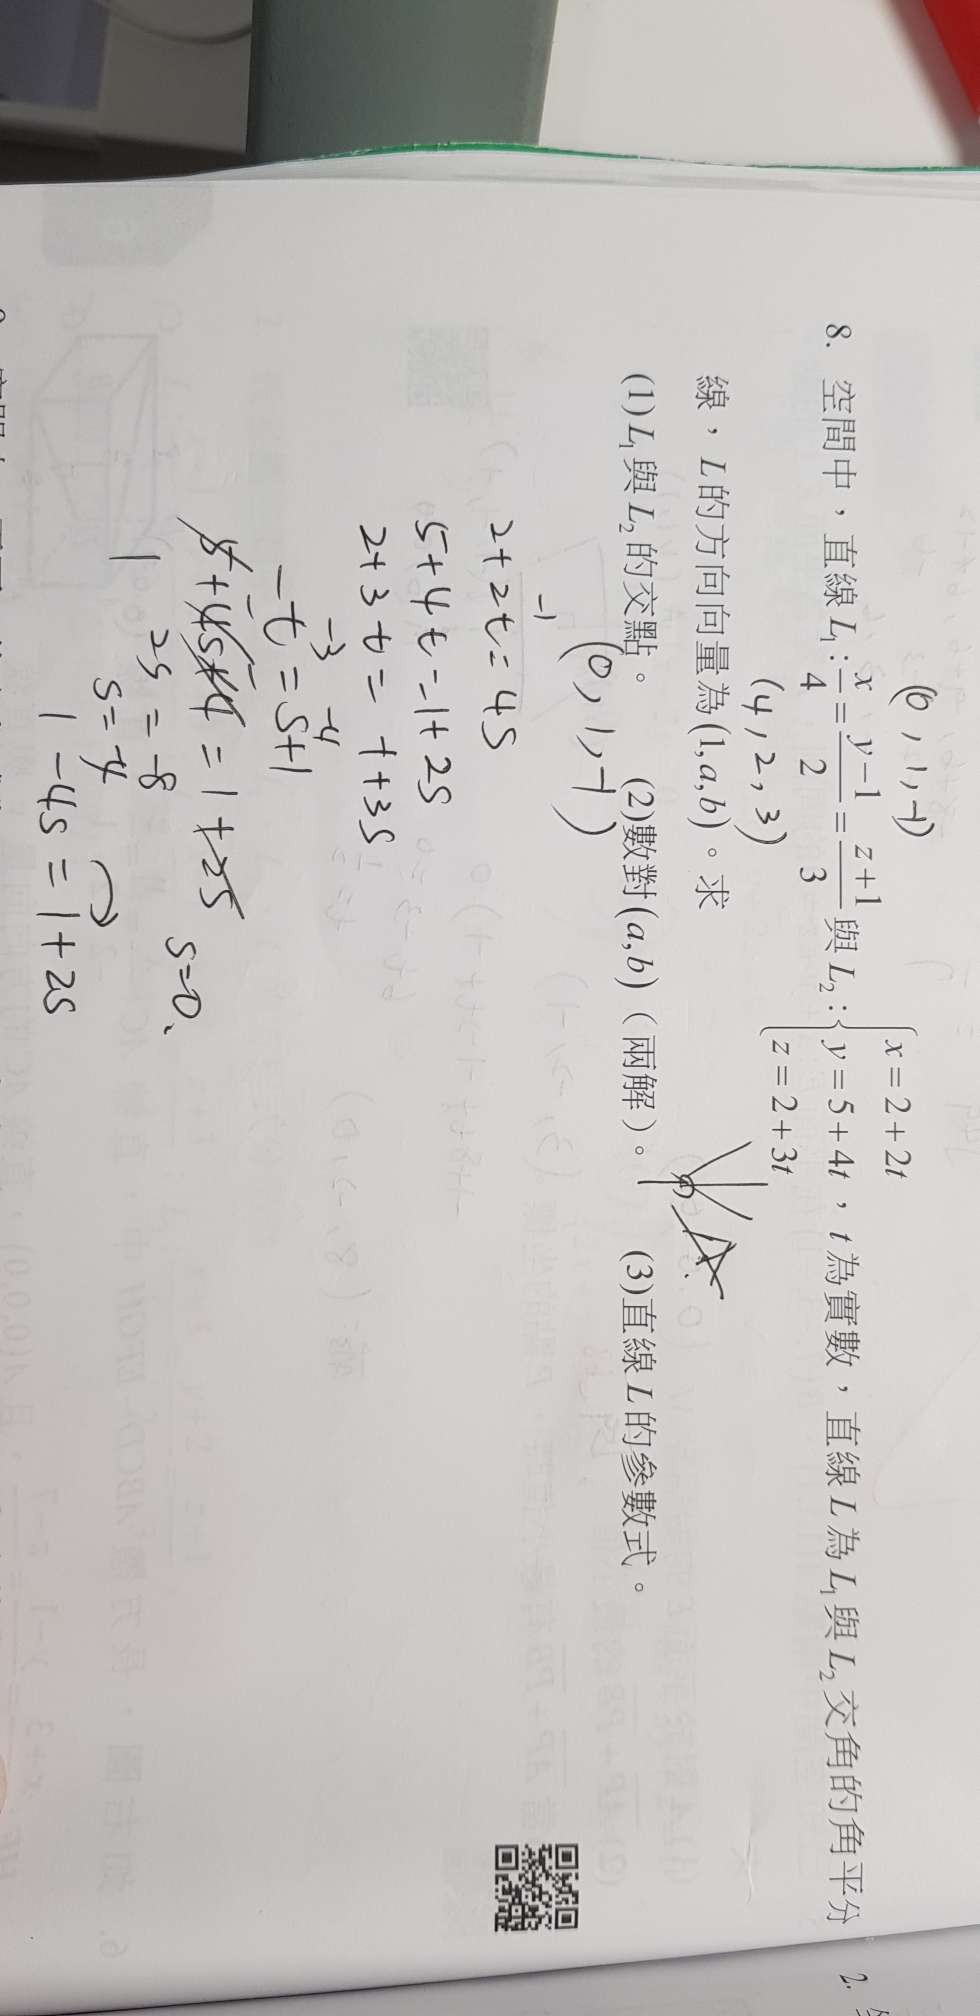 (0,1,-1)
8. 空間中，直線 L₁：x/4 = (y−1)/2 = (z+1)/3 與 L₂：{ x=2+2t, y=5+4t, z=2+3t ，t 為實數，直線 L 為 L₁ 與 L₂ 交角的角平分
(4,2,3)
線，L 的方向向量為(1,a,b)。求
(1) L₁ 與 L₂ 的交點。 (2)數對(a,b)（兩解）。 (3)直線 L 的參數式。
(0,1,-1)
2+2t=4s
5+4t=1+2s
2+3t=-1+3s
-t=s+1
-3 -4
=1+2s
s=0
2s=-8
s=-4
1-4s=1+2s
2.